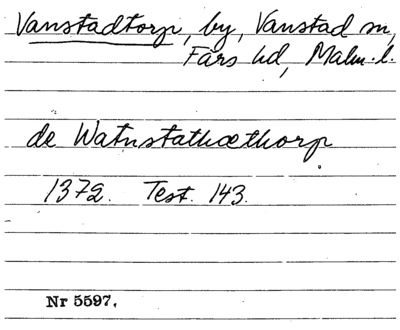 Vanstadtorp, by, Vanstad sn,
Färs hd, Malm. l.
de Watnstathæthorp
1372. Test. 143.
Nr 5597.